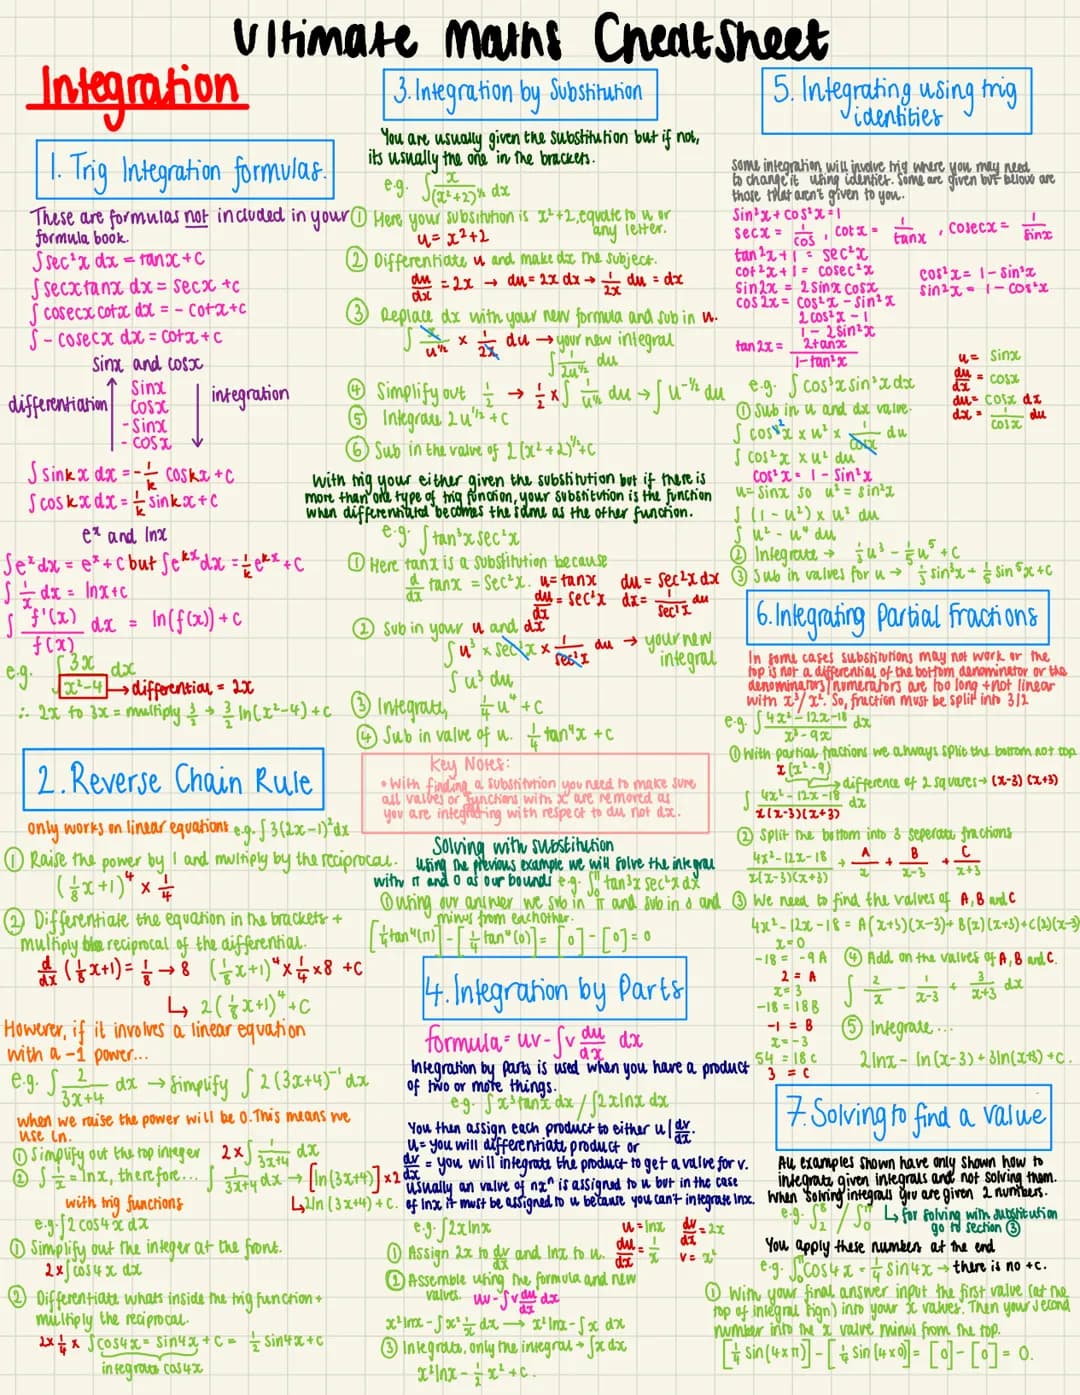 Ultimate Maths Cheatsheet
Integration
1. Trig Integration formulas.
These are formulas not included in your
formula book.
∫sec²x dx = tanx+C
∫secxtanx dx = secx +c
∫cosecx cotx dx = - cotx+c
∫- cosecx dx = cotx + c
Sinx and cosx
differentiation
Sinx
Cosx
-Sinx
- cosx
integration
∫sinkx dx = -1/k coskx +C
∫coskx dx = 1/k sinkx + C
eˣ and lnx
∫eˣdx = eˣ+C but ∫eᵏˣdx = 1/k eᵏˣ+C
∫1/x dx = lnx+c
∫f'(x)/f(x) dx = ln(f(x)) + c
e.g. ∫3x/x²-4 dx
→ differential = 2x
∴ 2x to 3x = multiply 3/2 → 3/2 ln(x²-4) + c
2. Reverse Chain Rule
only works on linear equations e.g. ∫3(2x-1)²dx
① Raise the power by 1 and multiply by the reciprocal.
(1/8x+1)⁴ × 1/4
② Differentiate the equation in the brackets +
multiply the reciprocal of the differential.
d/dx (1/8x+1) = 1/8 → 8 (1/8x+1)⁴ × 1/4 × 8 +C
↳ 2(1/8x+1)⁴ + C
However, if it involves a linear equation
with a -1 power...
e.g. ∫2/3x+4 dx → simplify ∫2(3x+4)⁻¹ dx
when we raise the power will be 0. This means we
use ln.
① Simplify out the top integer 2×∫1/3x+4 dx
② ∫1/x = lnx, therefore... ∫1/3x+4 dx → [ln(3x+4)] ×2
↳ 2ln(3x+4) + c.
with trig functions
e.g. ∫2cos4x dx
① Simplify out the integer at the front.
2×∫cos4x dx
② Differentiate whats inside the trig function +
multiply the reciprocal.
2×1/4 × ∫cos4x = sin4x + C = 1/2 sin4x+c
integrate cos4x
3. Integration by Substitution
You are usually given the substitution but if not,
its usually the one in the brackets.
e.g. ∫x/(x²+2)^½ dx
① Here your substitution is x²+2, equate to u or
any letter.
u = x²+2
② Differentiate u and make dx the subject.
du/dx = 2x → du = 2x dx → 1/2x du = dx
③ Replace dx with your new formula and sub in u.
∫x/u^½ × 1/2x du → your new integral
∫1/2u^½ du
④ Simplify out 1/2 → 1/2 × ∫1/u^½ du → ∫u^-½ du
⑤ Integrate 2u^½ + C
⑥ Sub in the value of 2(x²+2)^½+C
With trig your either given the substitution but if there is
more than one type of trig function, your substitution is the function
when differentiated becomes the same as the other function.
e.g. ∫tan³x sec²x
① Here tanx is a substitution because
d/dx tanx = Sec²x. u = tanx du = sec²x dx
du/dx = sec²x dx = 1/sec²x du
② Sub in your u and dx
∫u³ × sec²x × 1/sec²x du → your new
integral
∫u³ du
③ Integrate, 1/4 u⁴ + C
④ Sub in value of u. 1/4 tan⁴x + C
Key Notes:
• With finding a substitution you need to make sure
all values or functions with x are removed as
you are integrating with respect to du not dx.
Solving with substitution
Using the previous example we will solve the integral
with π and 0 as our bounds e.g. ∫₀^π tan³x sec²x dx
① Using our answer we sub in π and sub in 0 and
minus from eachother.
[1/4 tan⁴(π)] - [1/4 tan⁴(0)] = [0] - [0] = 0
4. Integration by Parts
formula = uv - ∫v du/dx dx
Integration by parts is used when you have a product
of two or more things.
e.g. ∫x³tanx dx / ∫2xlnx dx
You then assign each product to either u / dv/dx.
u = you will differentiate product or
dv/dx = you will integrate the product to get a value for v.
usually an value of nxⁿ is assigned to u but in the case
of lnx it must be assigned to u because you cant integrate lnx.
e.g. ∫2xlnx
u = lnx dv/dx = 2x
du/dx = 1/x v = x²
① Assign 2x to dv/dx and lnx to u.
② Assemble using the formula and new
values. uv-∫v du/dx dx
x²lnx - ∫x² 1/x dx → x²lnx - ∫x dx
③ Integrate, only the integral → ∫x dx
x²lnx - 1/2 x² + c.
5. Integrating using trig
identities
Some integration will involve trig where you may need
to change it using identies. Some are given but below are
those that aren't given to you.
Sin²x + cos²x = 1
secx = 1/cos , cotx = 1/tanx , cosecx = 1/sinx
tan²x + 1 = sec²x
cot²x + 1 = cosec²x
cos²x = 1 - sin²x
sin2x = 2sinx cosx
sin²x = 1 - cos²x
cos2x = cos²x - sin²x
2cos²x - 1
1 - 2sin²x
tan2x = 2tanx/1-tan²x
e.g. ∫cos³x sin²x dx
u = sinx
du/dx = cosx
du = cosx dx
dx = 1/cosx du
① Sub in u and dx value.
∫cos³x × u² × 1/cosx du
∫cos²x × u² du
cos²x = 1 - Sin²x
u = sinx so u² = sin²x
∫(1 - u²) × u² du
∫u² - u⁴ du
② Integrate → 1/3u³ - 1/5u⁵ + C
③ Sub in values for u → 1/3 sin³x - 1/5 sin⁵x + C
6. Integrating Partial Fractions
In some cases substitutions may not work or the
top is not a differential of the bottom denominator or the
denominators/numerators are too long + not linear
with x³/x². So, fraction must be split into 3/2
e.g. ∫4x²-12x-18/x³-9x dx
① With partial fractions we always split the bottom not top
x(x²-9)
→ difference of 2 squares → (x-3)(x+3)
∫4x²-12x-18/x(x-3)(x+3) dx
② Split the bottom into 3 seperate fractions
4x²-12x-18/x(x-3)(x+3) + A/x + B/x-3 + C/x+3
③ We need to find the values of A, B and C
4x²-12x-18 = A(x+3)(x-3)+B(x)(x+3)+c(x)(x-3)
x=0
-18 = -9A
2 = A
x=3
-18 = 18B
-1 = B
x=-3
54 = 18c
3 = C
④ Add on the values of A, B and C.
∫2/x - 1/x-3 + 3/x+3 dx
⑤ Integrate...
2lnx - ln(x-3)+3ln(x+3)+C.
7. Solving to find a value
All examples shown have only shown how to
integrate given integrals and not solving them.
When solving integrals you are given 2 numbers.
e.g. ∫₂⁸ / ∫₀^π ↳ for solving with substitution
go to section ③
You apply these numbers at the end
e.g. ∫₀^π cos4x = 1/4 sin4x → there is no +c.
① With your final answer input the first value (at the
top of integral sign) into your x values. Then your second
number into the x value minus from the top.
[1/4 sin(4×π)] - [1/4 sin(4×0)] = [0] - [0] = 0.